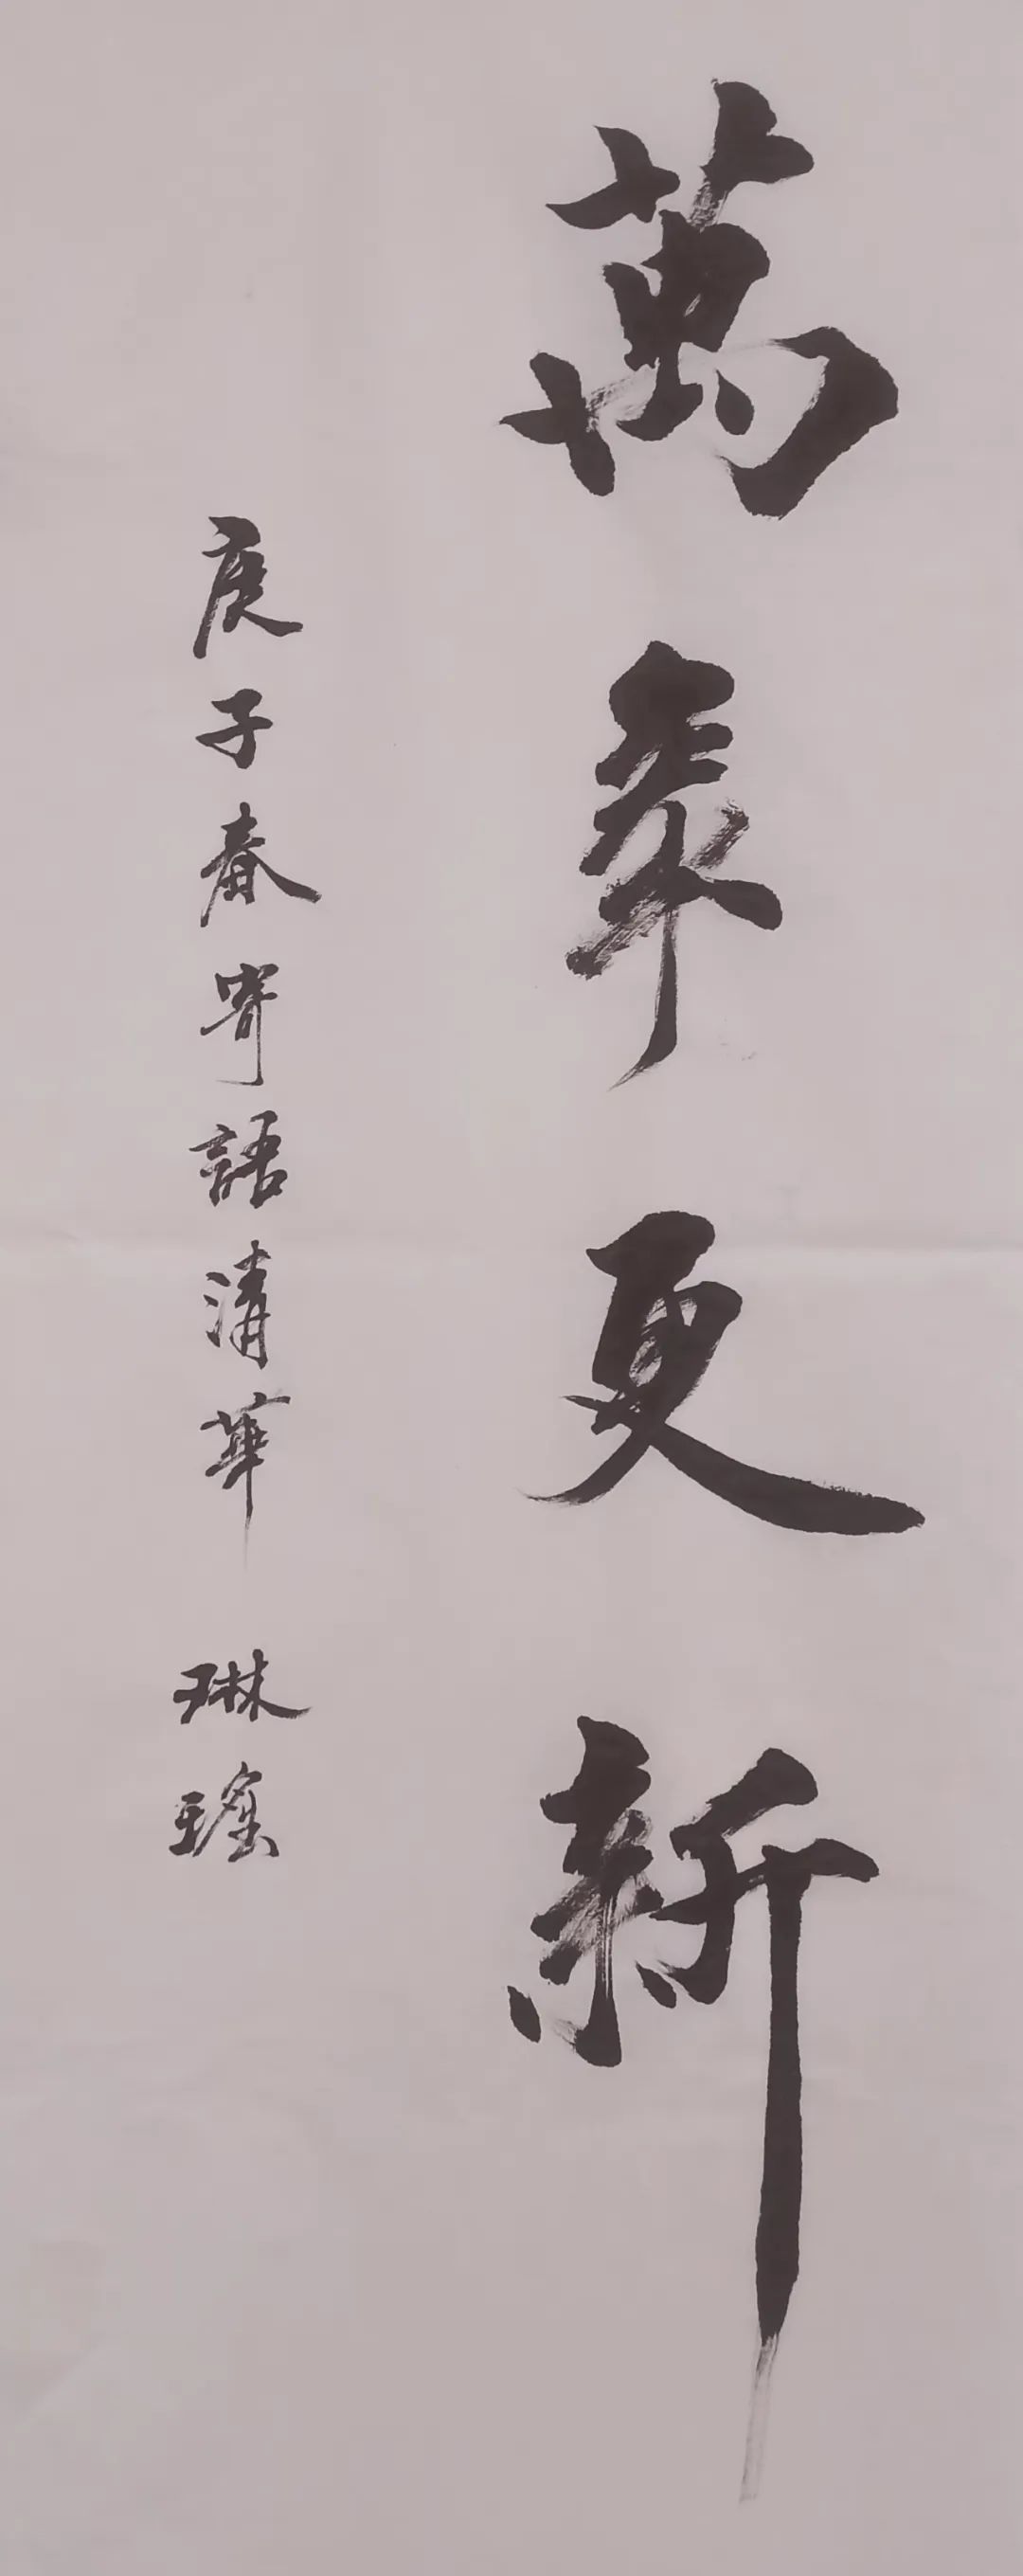 萬年更新
庚子春寄語清華 琳瑤